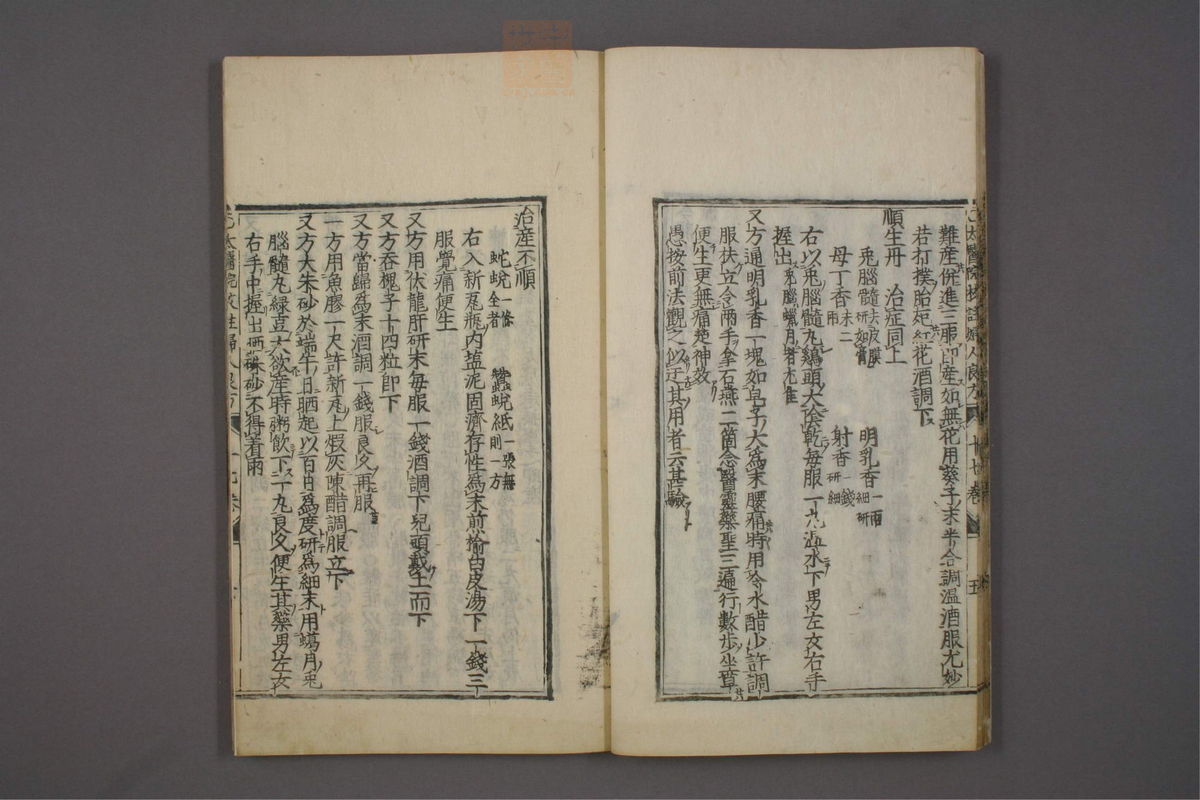 難産併進三服即産如無花用葵子末半合調温酒服尤妙
若打撲胎死紅花酒調下
順生丹　治症同上
兎腦髓去皮膜研如膏　明乳香一兩細研
母丁香末二兩　射香一錢研細
右以兎腦髓丸鷄頭大陰乾毎服一丸温水下男左女右手
握出兎腦臘月者尤佳
又方通明乳香一塊如皂子大爲末腰痛時用冷水醋少許調
服扶立令兩手拿石燕二箇念醫靈藥聖三遍行數歩坐草
便生更無痛楚神效
愚按前法觀之似迂其用者云甚驗
治産不順
蛇蛻一條全者　蠶蛻紙一張無則一方
右入新瓦瓶内塩泥固濟存性爲末煎楡白皮湯下一錢三
服覺痛便生
又方用伏龍肝研末毎服一錢酒調下兒頭戴土而下
又方呑槐子十四粒即下
又方當歸爲末酒調一錢服良久再服
一方用魚膠一尺許新瓦上煆灰陳醋調服立下
又方大朱砂於端午日晒起以百日爲度研爲細末用蠟月兎
腦髓丸緑豆大欲産時粥飲下一丸良久便生其藥男左女
右手中握出晒硃砂不得着雨
太醫院校註婦人良方